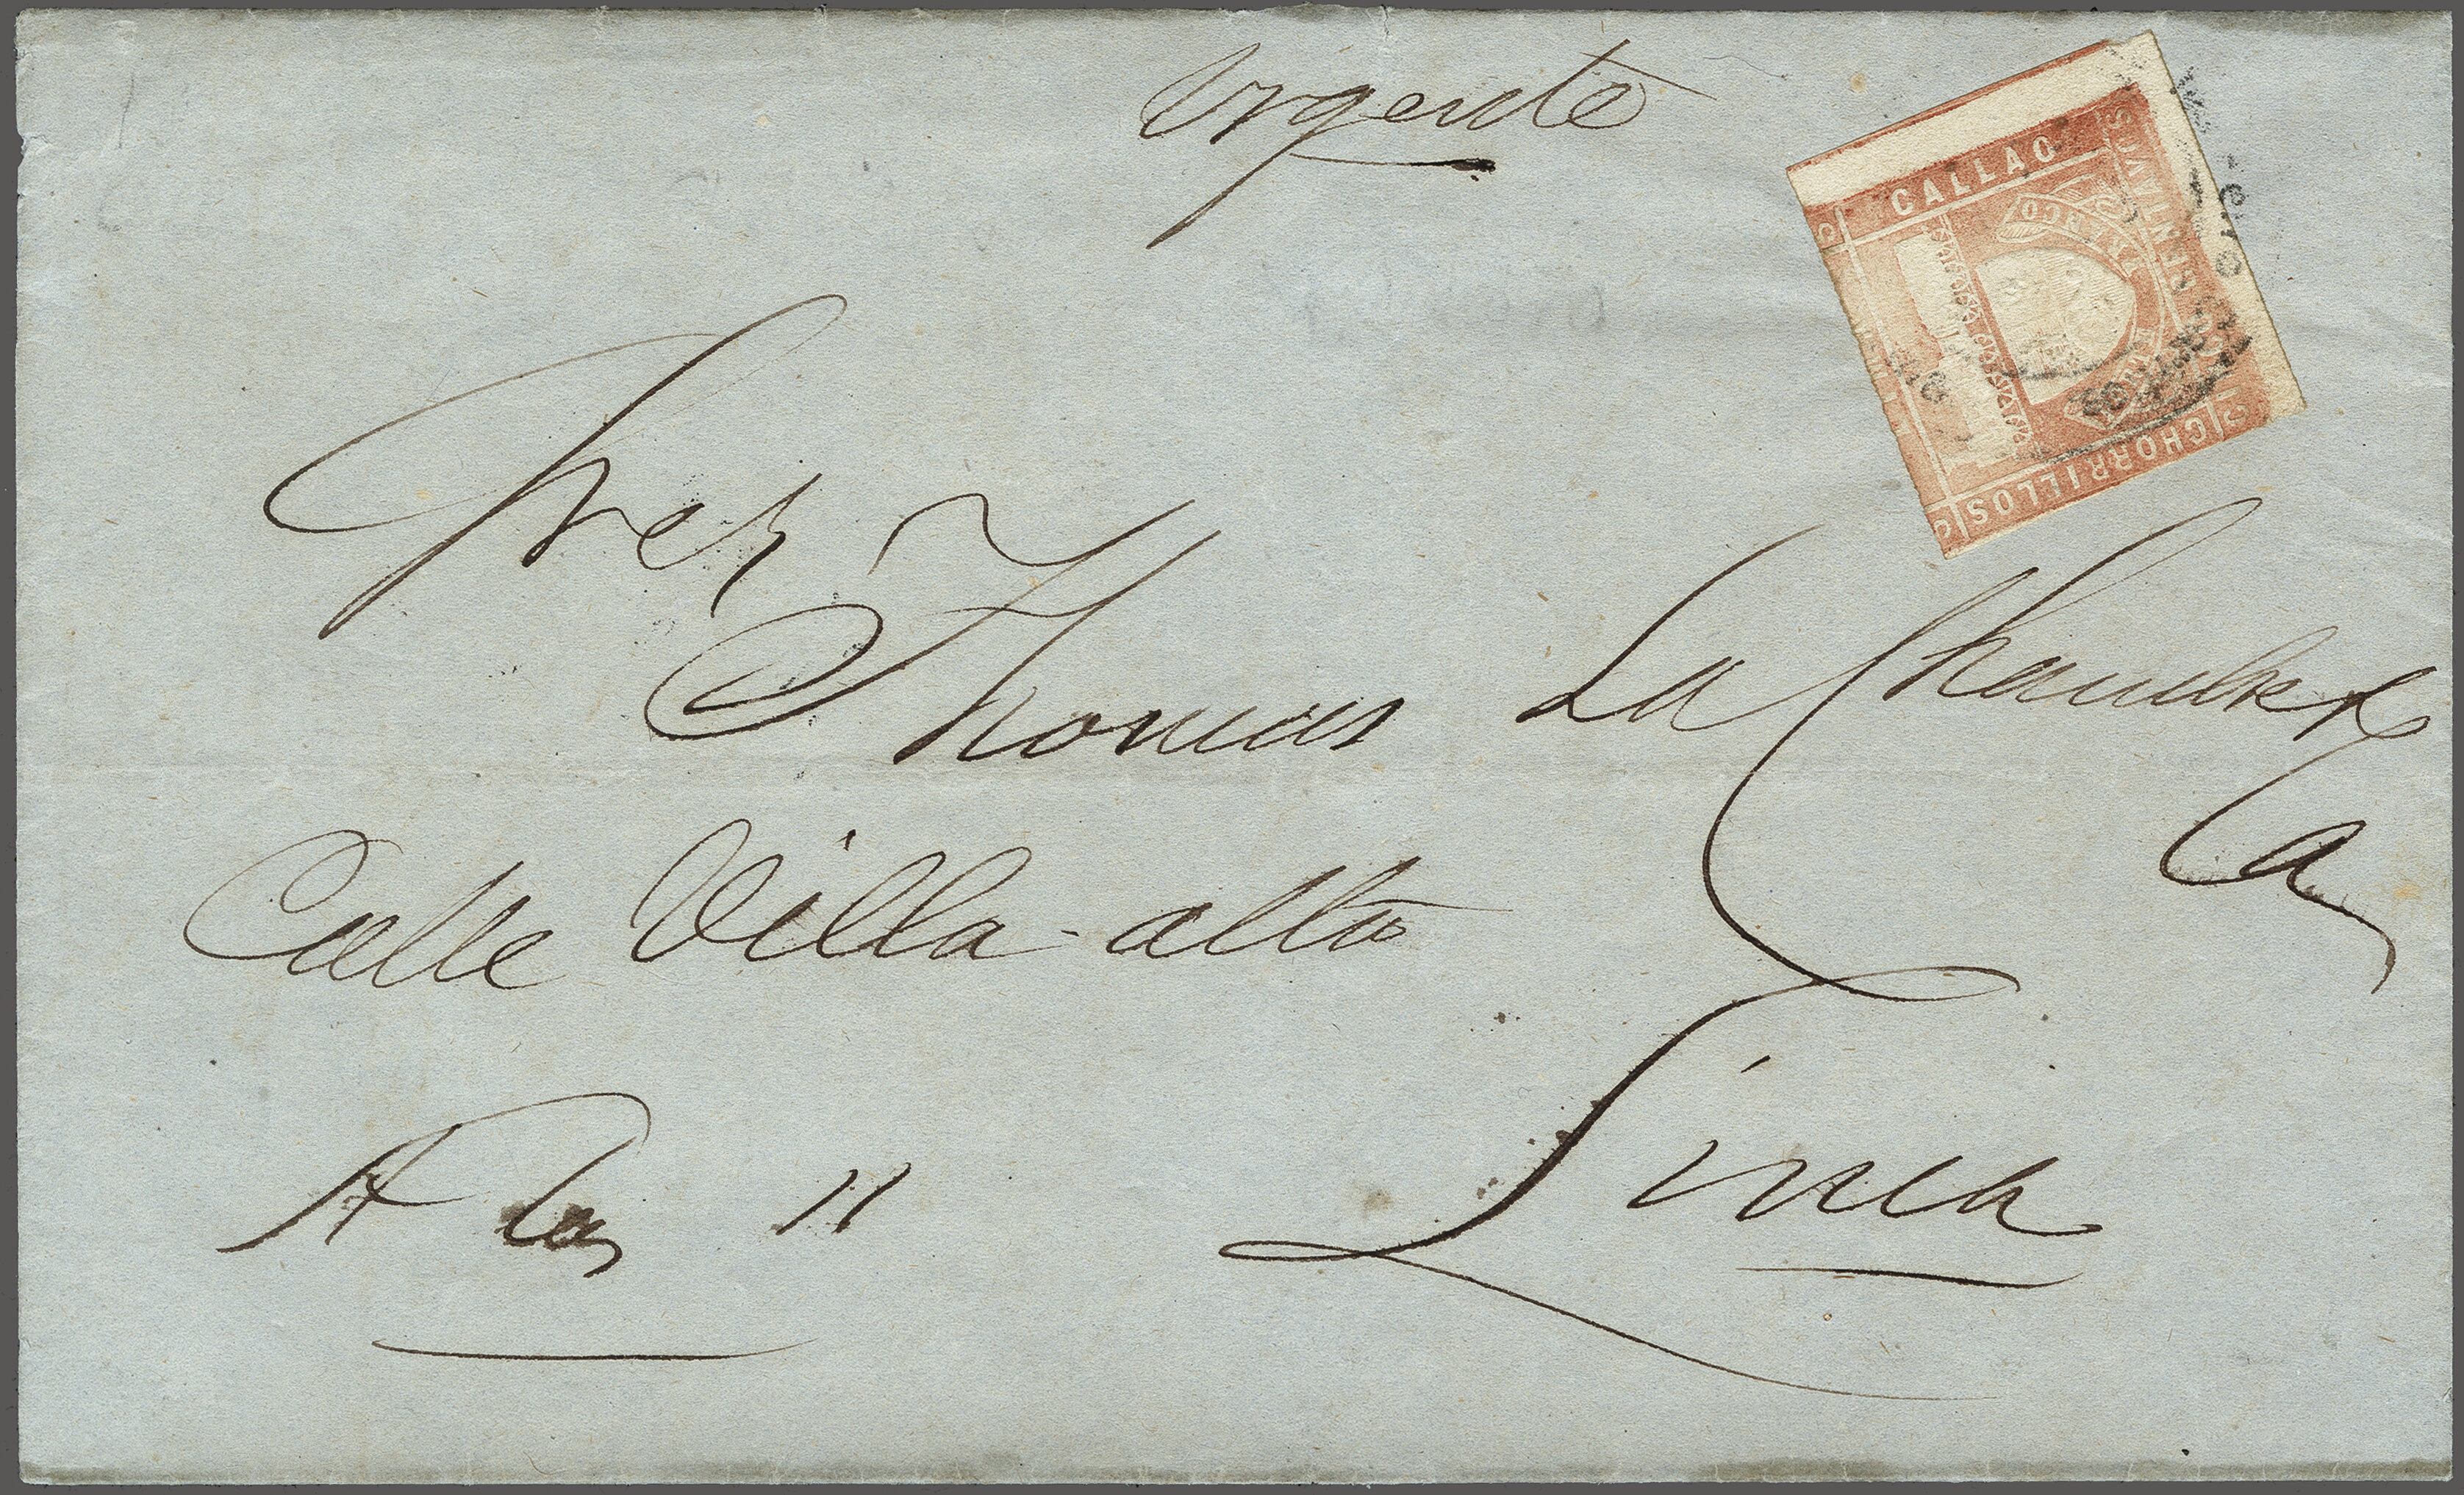 Urgente
CALLAO
CHORRILLOS
Thomas La Chambre
Ca
Calle Villa-alta
A las 11
Lima